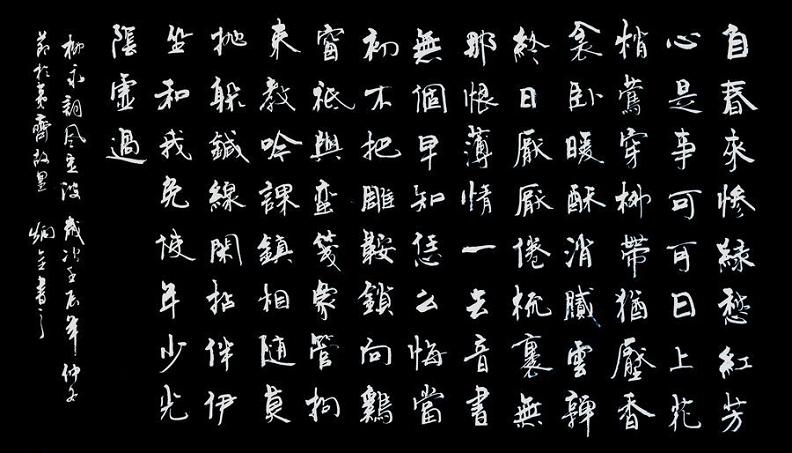 自春來慘緑愁紅芳
心是事可可日上花
悄鶯穿柳帶猶壓香
衾卧暖酥消膩雲嚲
終日厭厭倦梳裹無
那恨薄情一去音書
無個早知恁么悔當
初不把雕鞍鎖向鷄
窗祇與蛮箋象管拘
束教吟課鎮相隨莫
抛躲鍼線閑拈伴伊
坐和我免使年少光
陰虛過
柳永詞風定波 歲次壬辰年 仲冬
齊故里 書之